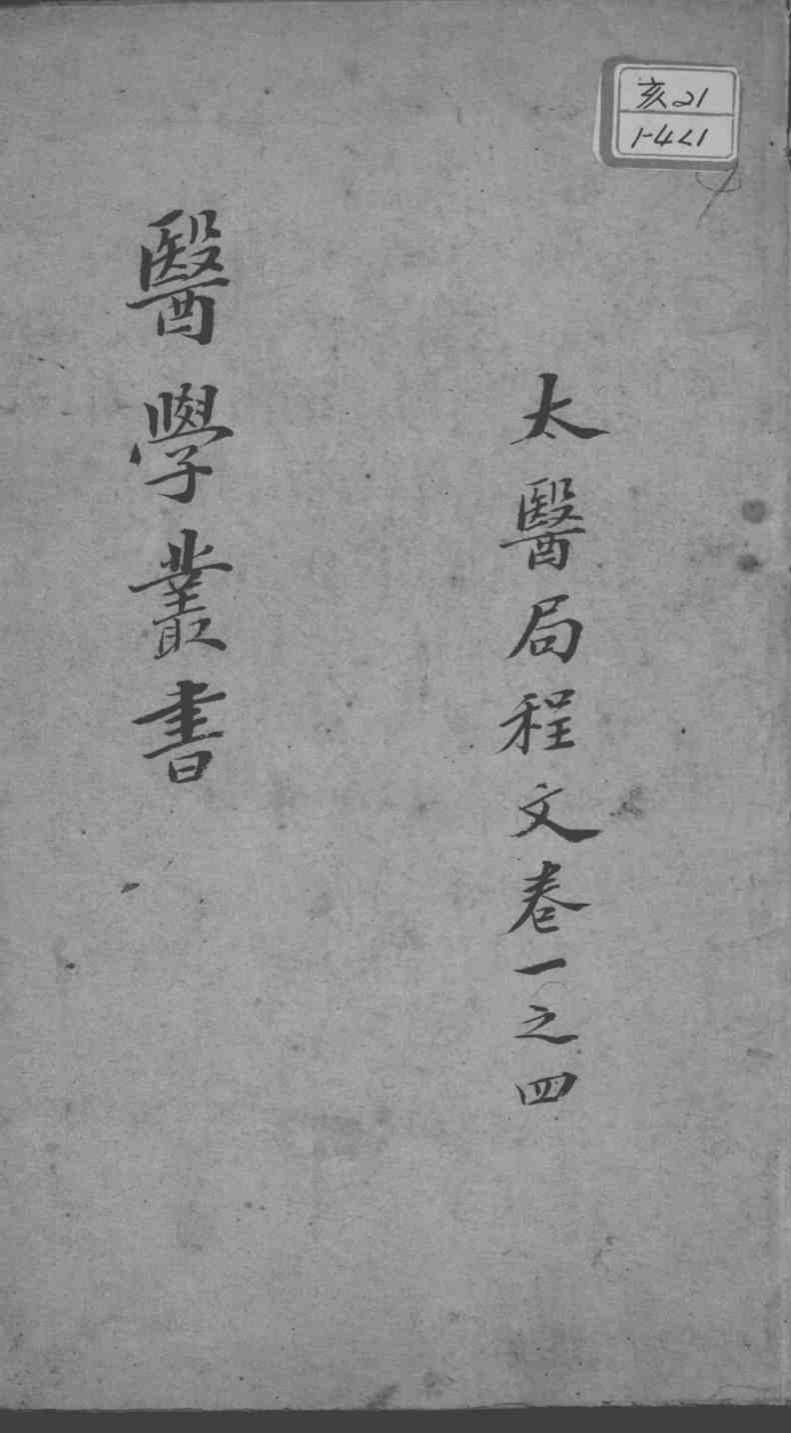 亥21
1-421
太醫局程文卷一之四
醫學叢書